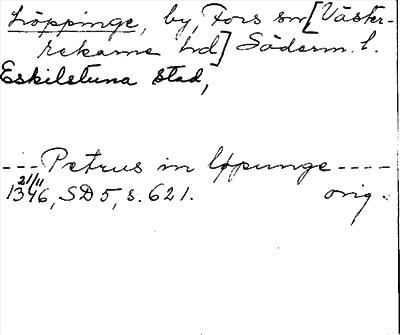 Löppinge, by, Fors sn [Väster-
rekarne hd] Söderm. l.
Eskilstuna stad,
---Petrus in løpunge----
21/11
1346, SD 5, s. 621. orig.